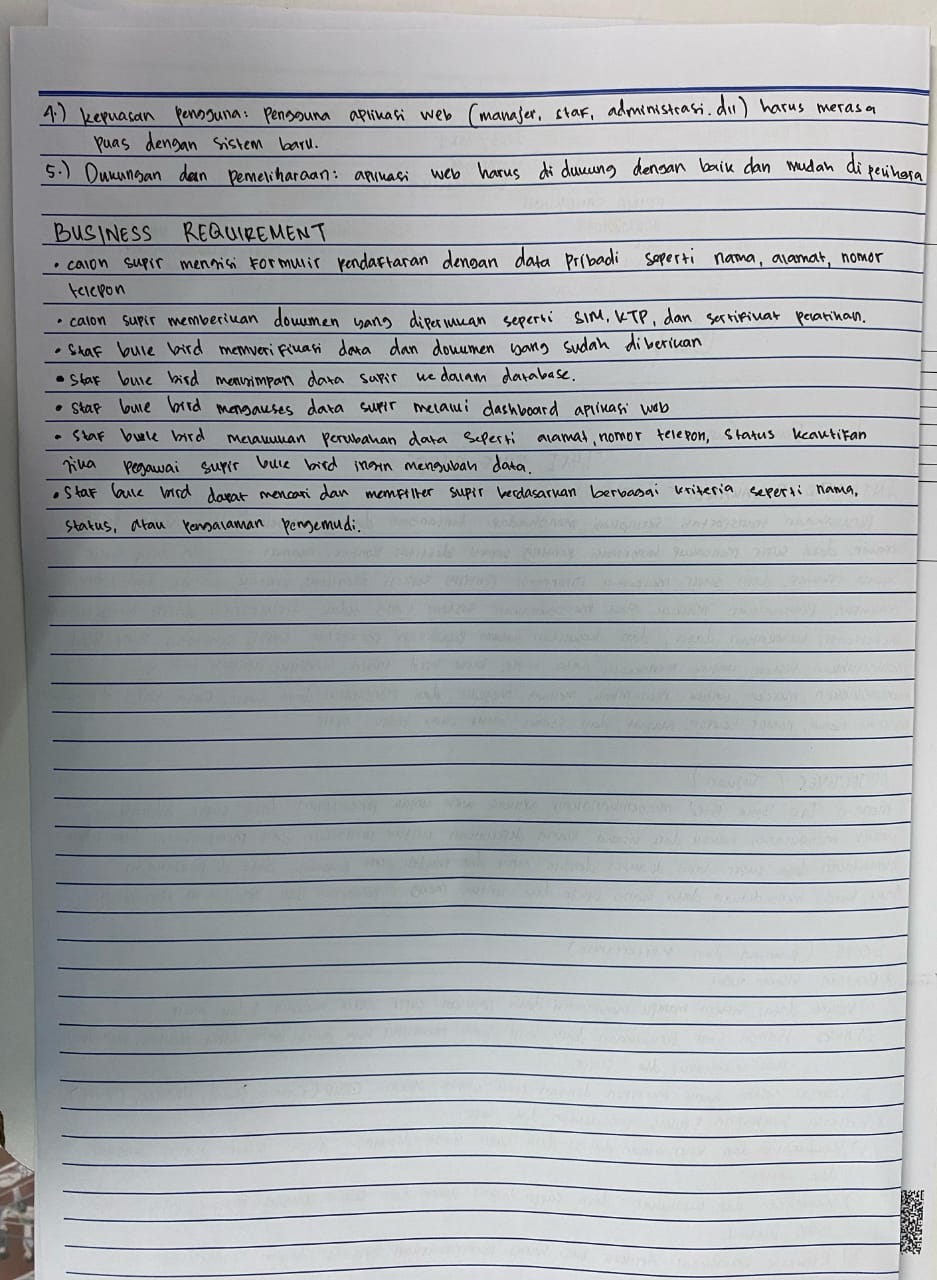 4.) kepuasan pengguna: Pengguna aplikasi web (manajer, staf, administrasi. dll) harus merasa
puas dengan sistem baru.
5.) Dukungan dan pemeliharaan: aplikasi web harus di dukung dengan baik dan mudah di pelihara
BUSINESS REQUIREMENT
• calon supir mengisi formulir pendaftaran dengan data pribadi seperti nama, alamat, nomor
telepon
• calon supir memberikan dokumen yang diperlukan seperti SIM, KTP, dan sertifikat pelatihan.
• Staf bule bird memverifikasi data dan dokumen yang sudah diberikan
• Staf bule bird menyimpan data supir ke dalam database.
• Staf bule bird mengakses data supir melalui dashboard aplikasi web
• Staf bule bird melakukan perubahan data seperti alamat, nomor telepon, status keaktifan
jika pegawai supir bule bird ingin mengubah data.
• Staf bule bird dapat mencari dan memfilter supir berdasarkan berbagai kriteria seperti nama,
status, atau pengalaman pengemudi.